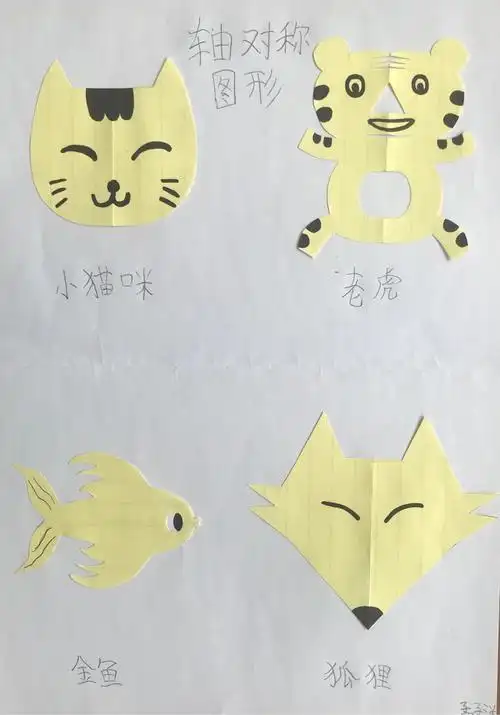 轴对称
图形
小猫咪
老虎
金鱼
狐狸